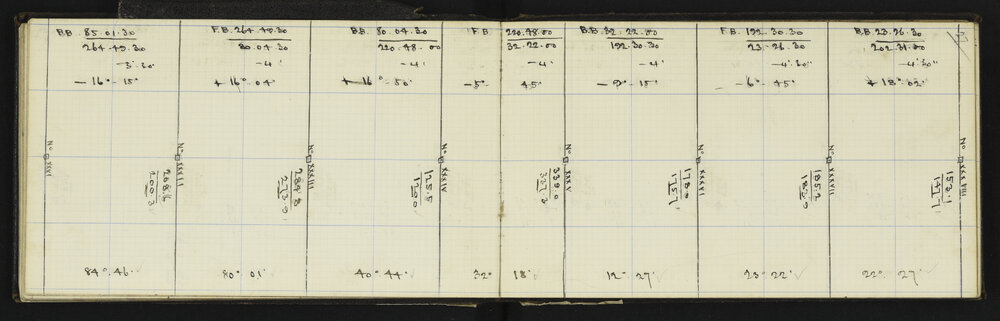 B.B. 85.01.30
264.45.30
-3'.30"
-16°.15'
F.B. 264.45.30
80.04.30
-4'
+16°.04'
B.B. 80.04.30
220.48.00
-4'
+16°.50'
F.B. 220.48.00
32.22.00
-4'
-5° 45'
B.B. 32.22.00
192.30.30
-4'
-9°.15'
F.B. 192.30.30
23.26.30
-4'.30"
-6°.45'
B.B. 23.26.30
202.31.00
-4'.30"
+18°.02'
No XXXI
268.6
200.3
No XXXII
284.8
273.0
No XXXIII
125.5
120.0
No XXXIV
339.0
327.3
No XXXV
178.0
175.7
No XXXVI
185.2
183.9
No XXXVII
153.1
147.7
No XXXVIII
84°.46'
80°.01'
40°.44'
32° 18'
12°.27'
23°.22'
22°.27'